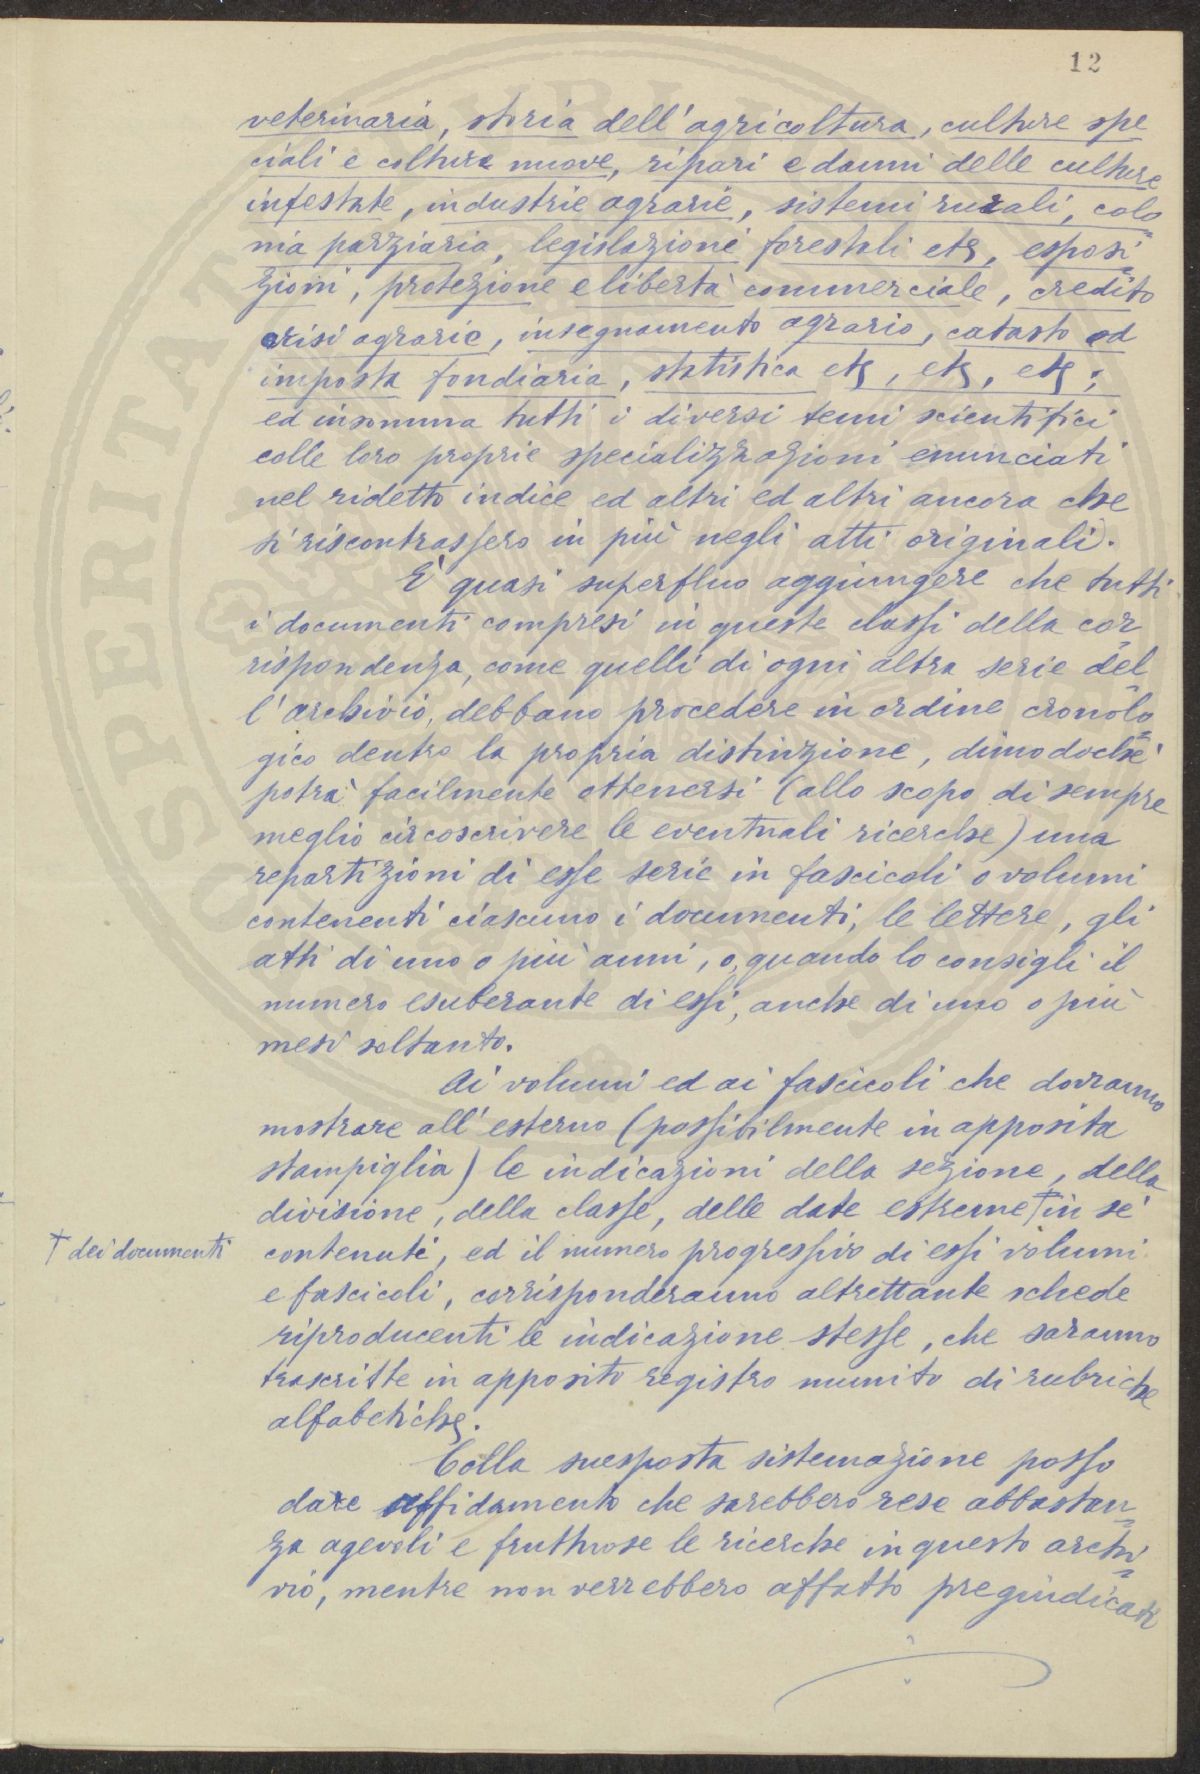 12
veterinaria, storia dell'agricoltura, culture spe
ciali e colture nuove, ripari e danni delle culture
infestate, industrie agrarie, sistemi rurali, colo
nia parziaria, legislazione forestali etc, esposi
zioni, protezione e libertà commerciale, credito
crisi agrarie, insegnamento agrario, catasto ed
imposta fondiaria, statistica etc, etc, etc;
ed insomma tutti i diversi temi scientifici
colle loro proprie specializzazioni enunciati
nel ridetto indice ed altri ed altri ancora che
si riscontrassero in più negli atti originali.
È quasi superfluo aggiungere che tutti
i documenti compresi in queste classi della cor
rispondenza, come quelli di ogni altra serie del
l'archivio, debbano procedere in ordine cronolo
gico dentro la propria distinzione, dimodochè
potrà facilmente ottenersi (allo scopo di sempre
meglio circoscrivere le eventuali ricerche) una
repartizioni di esse serie in fascicoli o volumi
contenenti ciascuno i documenti, le lettere, gli
atti di uno o più anni, o, quando lo consigli il
numero esuberante di essi, anche di uno o più
mesi soltanto.
Ai volumi ed ai fascicoli che dovranno
mostrare all'esterno (possibilmente in apposita
stampiglia) le indicazioni della sezione, della
divisione, della classe, delle date estreme † in sè
† dei documenti
contenuti, ed il numero progressivo di essi volumi
e fascicoli, corrisponderanno altrettante schede
riproducenti le indicazione stesse, che saranno
trascritte in apposito registro munito di rubriche
alfabetiche.
Colla suesposta sistemazione posso
dare affidamento che sarebbero rese abbastan=
za agevoli e fruttuose le ricerche in questo archi=
vio, mentre non verrebbero affatto pregiudicati
OSPERITAT